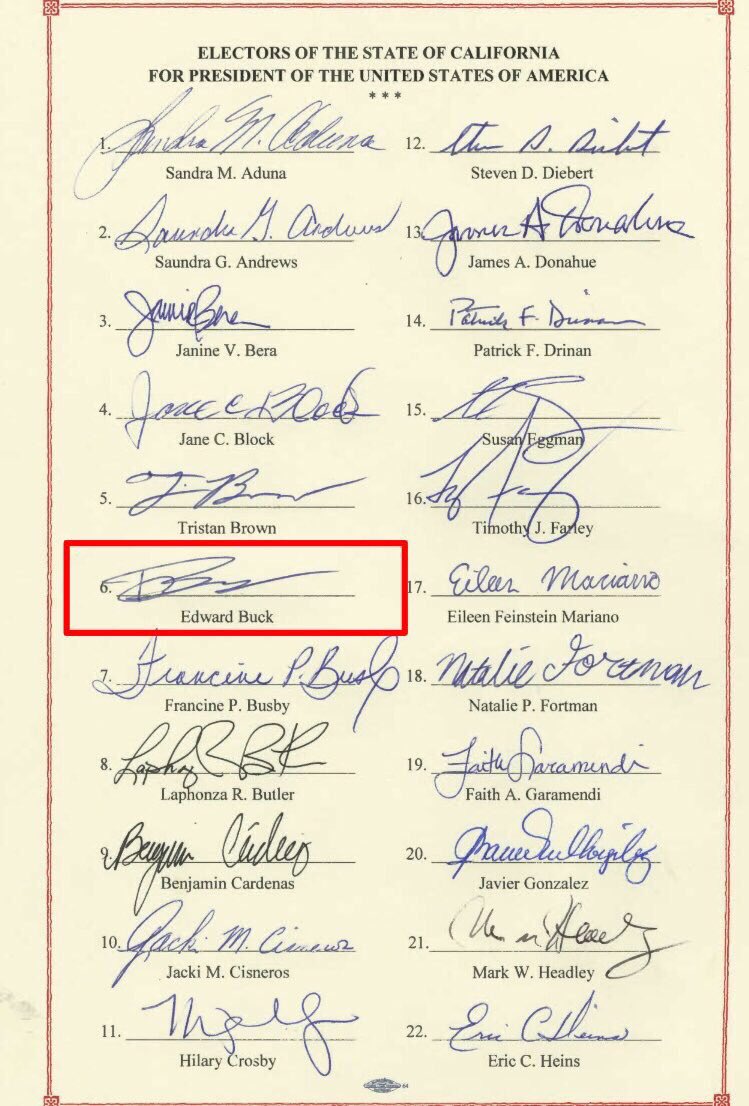 ELECTORS OF THE STATE OF CALIFORNIA
FOR PRESIDENT OF THE UNITED STATES OF AMERICA
* * *
1. Sandra M. Aduna
Sandra M. Aduna
2. Saundra G. Andrews
Saundra G. Andrews
3.
Janine V. Bera
4. Jane C Block
Jane C. Block
5.
Tristan Brown
6.
Edward Buck
7. Francine P. Busby
Francine P. Busby
8.
Laphonza R. Butler
9. Benjamin Cardenas
Benjamin Cardenas
10. Jacki M. Cisneros
Jacki M. Cisneros
11.
Hilary Crosby
12.
Steven D. Diebert
13. James A Donahue
James A. Donahue
14. Patrick F. Drinan
Patrick F. Drinan
15.
Susan Eggman
16.
Timothy J. Farley
17. Eileen Mariano
Eileen Feinstein Mariano
18. Natalie Fortman
Natalie P. Fortman
19. Faith Garamendi
Faith A. Garamendi
20.
Javier Gonzalez
21.
Mark W. Headley
22. Eric C. Heins
Eric C. Heins